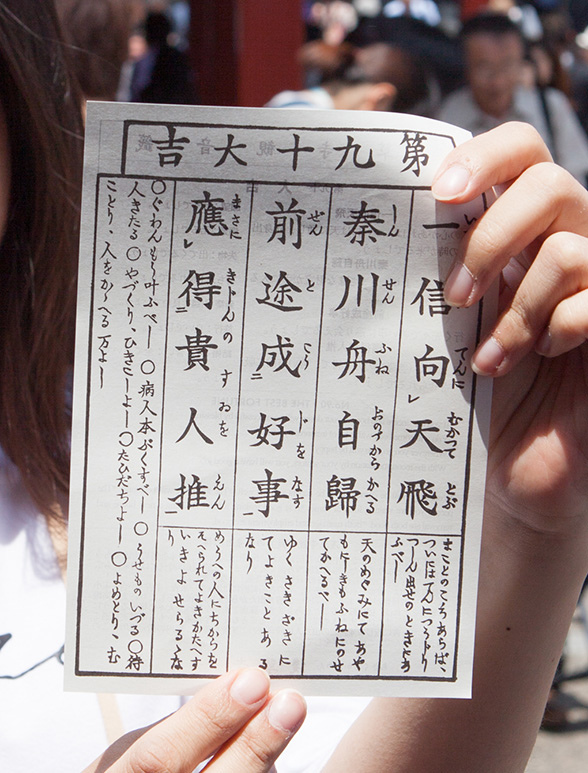 第九十大吉
一信向レ天飛
てんに むかつて とぶ
秦川舟自歸
しん せん ふね おのづから かへる
前途成二好事一
ぜん と じを なす
應レ得二貴人推一
まさに えん
まことのこころあらば、
ふべし
天のめぐみにてあや
もにしきもふねにのせ
てかへるべし
ゆくさきざきに
てよきことある
なり
めうへの人にちからを
そへられてよきかたへす
いきよせらるゝな
り
○ぐわんもう叶ふべし ○病人本ぶくすべし ○うせものいづる ○待
人きたる ○やづくり、ひきこしよし ○たびだちよし ○よめとり、む
ことり、人をかゝへる万よし